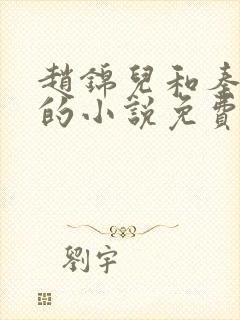 趙錦兒和秦
的小說免費
劉宇